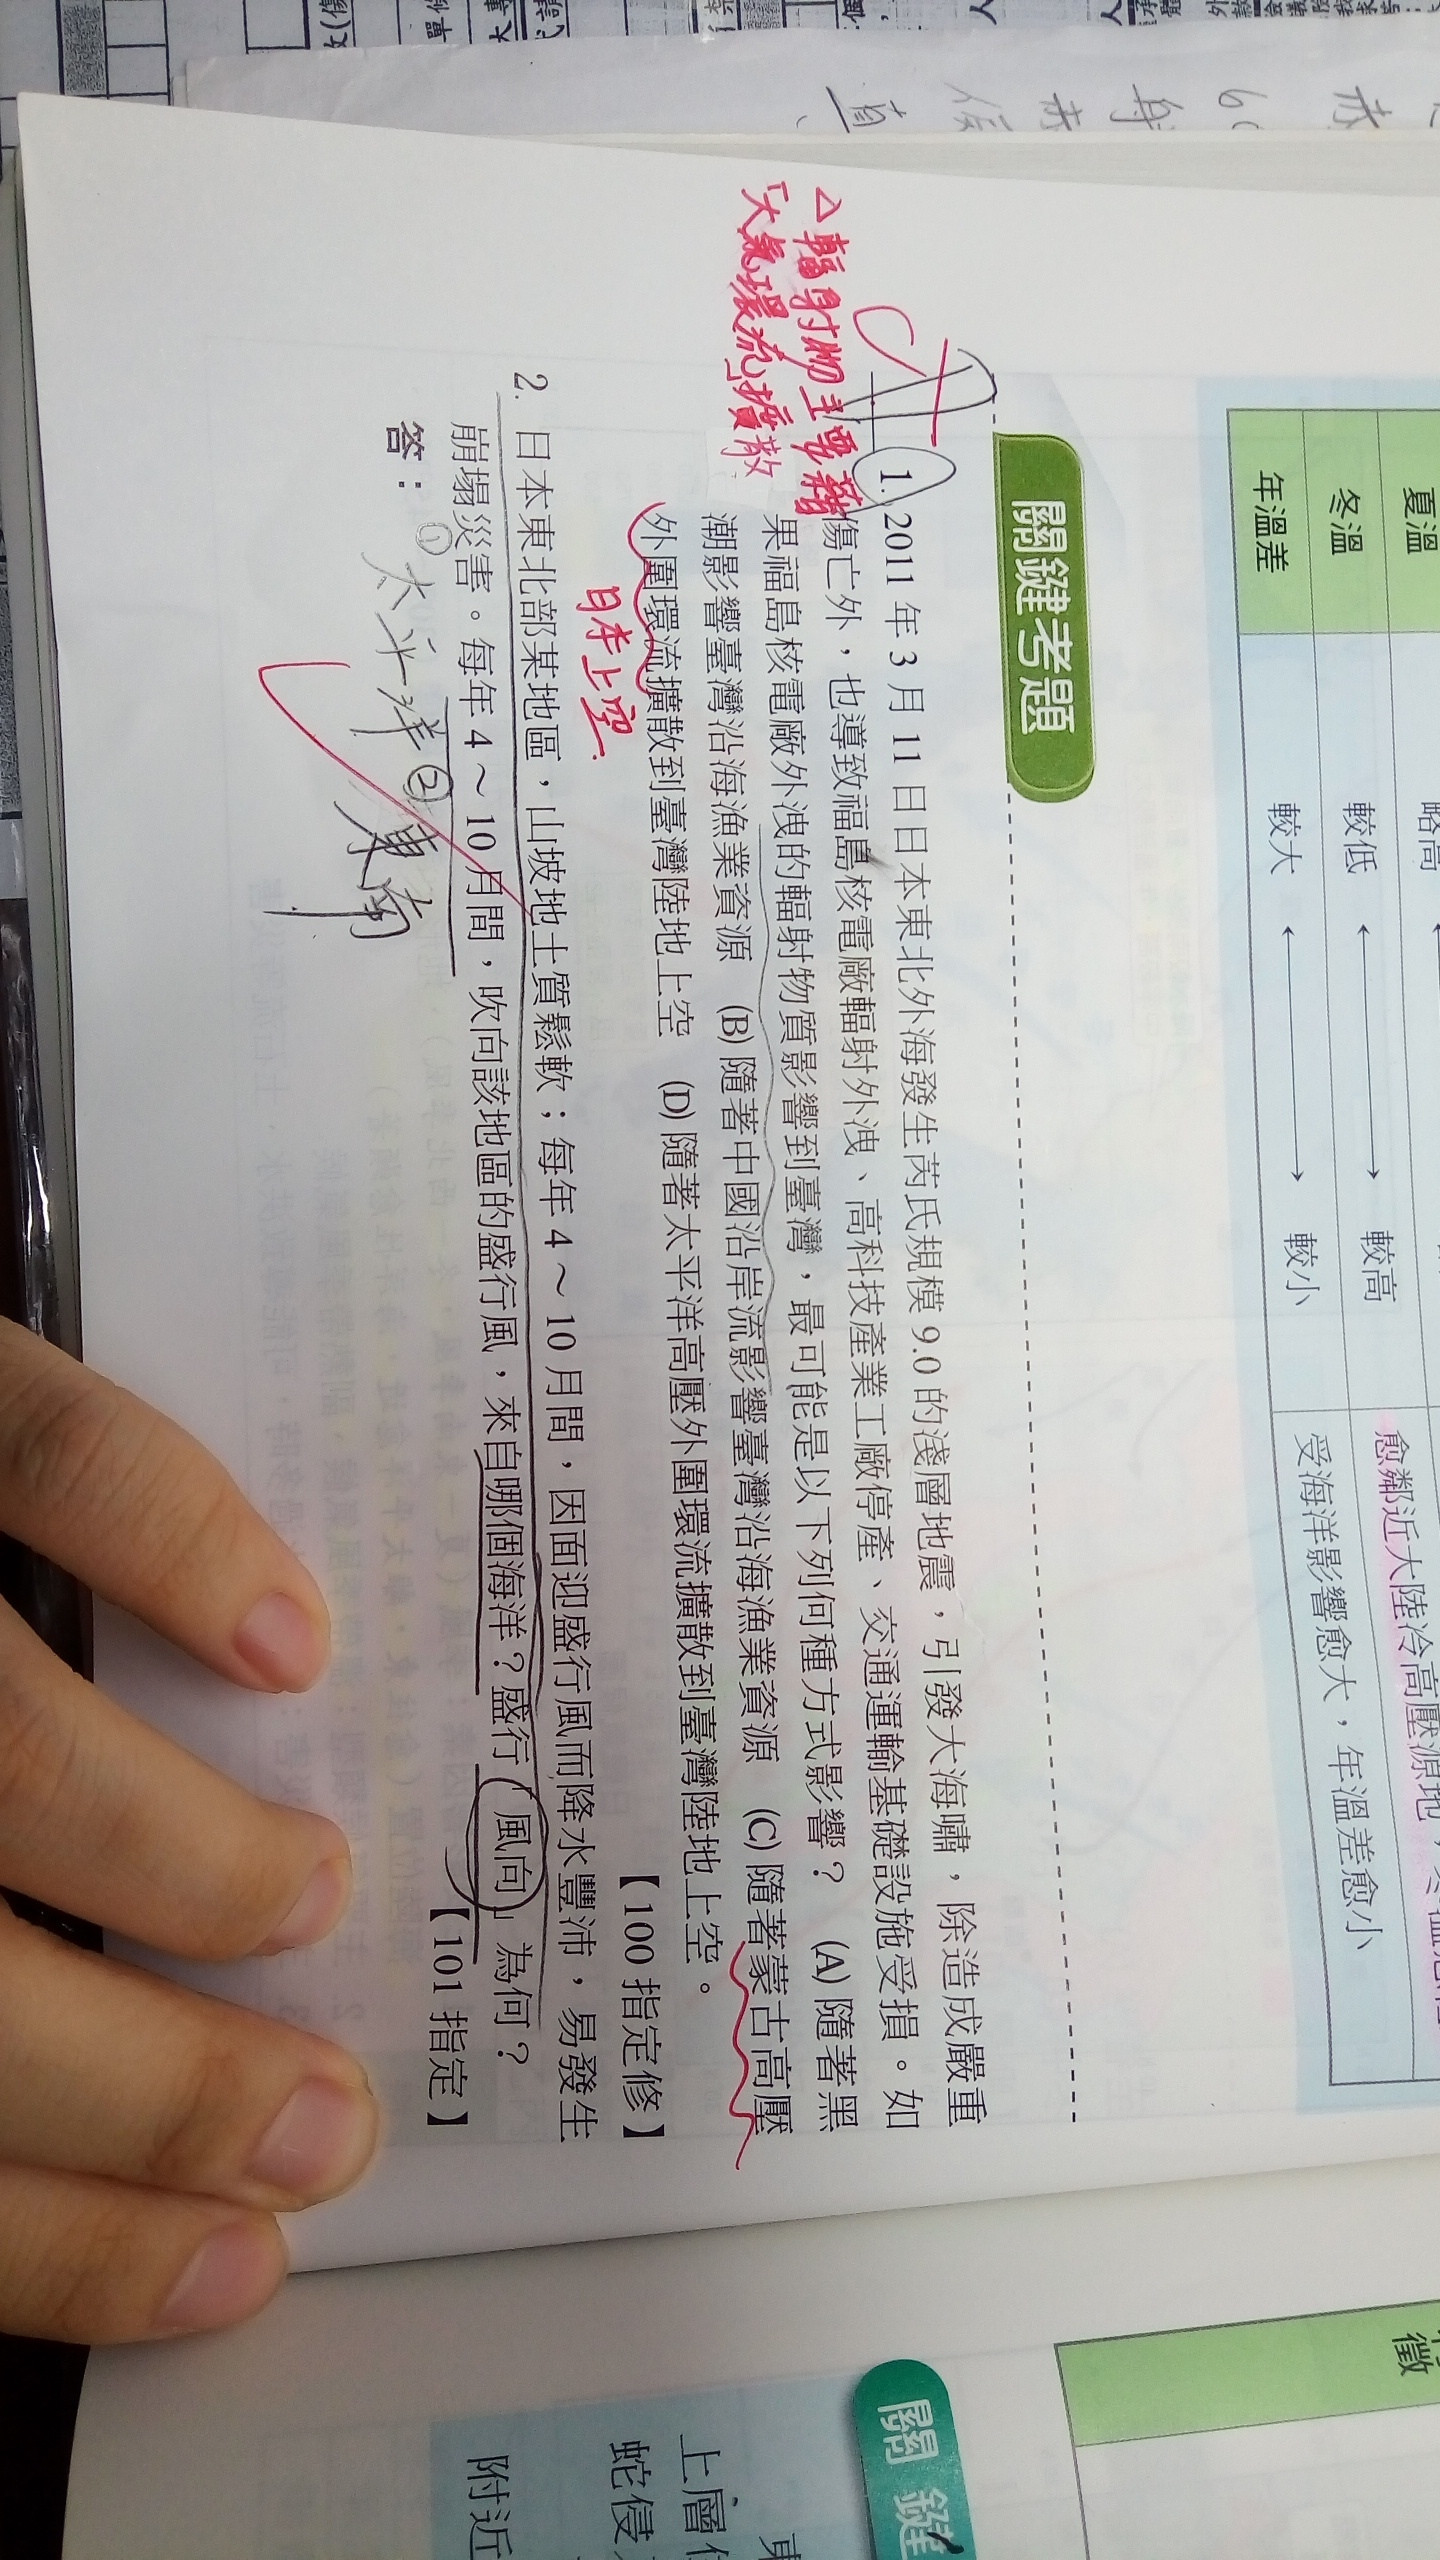 夏溫
略高
冬溫
較低
較高
愈鄰近大陸冷高壓源地，冬溫愈低
年溫差
較大
較小
受海洋影響愈大，年溫差愈小
關鍵考題
1. 2011 年 3 月 11 日日本東北外海發生芮氏規模 9.0 的淺層地震，引發大海嘯，除造成嚴重
傷亡外，也導致福島核電廠輻射外洩、高科技產業工廠停產、交通運輸基礎設施受損。如
果福島核電廠外洩的輻射物質影響到臺灣，最可能是以下列何種方式影響？ (A) 隨著黑
潮影響臺灣沿海漁業資源 (B) 隨著中國沿岸流影響臺灣沿海漁業資源 (C) 隨著蒙古高壓
外圍環流擴散到臺灣陸地上空 (D) 隨著太平洋高壓外圍環流擴散到臺灣陸地上空。
【100 指定修】
C
△輻射物主要藉
「大氣環流」擴散
日本上空
2. 日本東北部某地區，山坡地土質鬆軟；每年 4～10 月間，因面迎盛行風而降水豐沛，易發生
崩塌災害。每年 4～10 月間，吹向該地區的盛行風，來自哪個海洋？盛行「風向」為何？
【101 指定】
答：① 太平洋 ② 東南
關鍵
上層
蛇侵
附近
徵